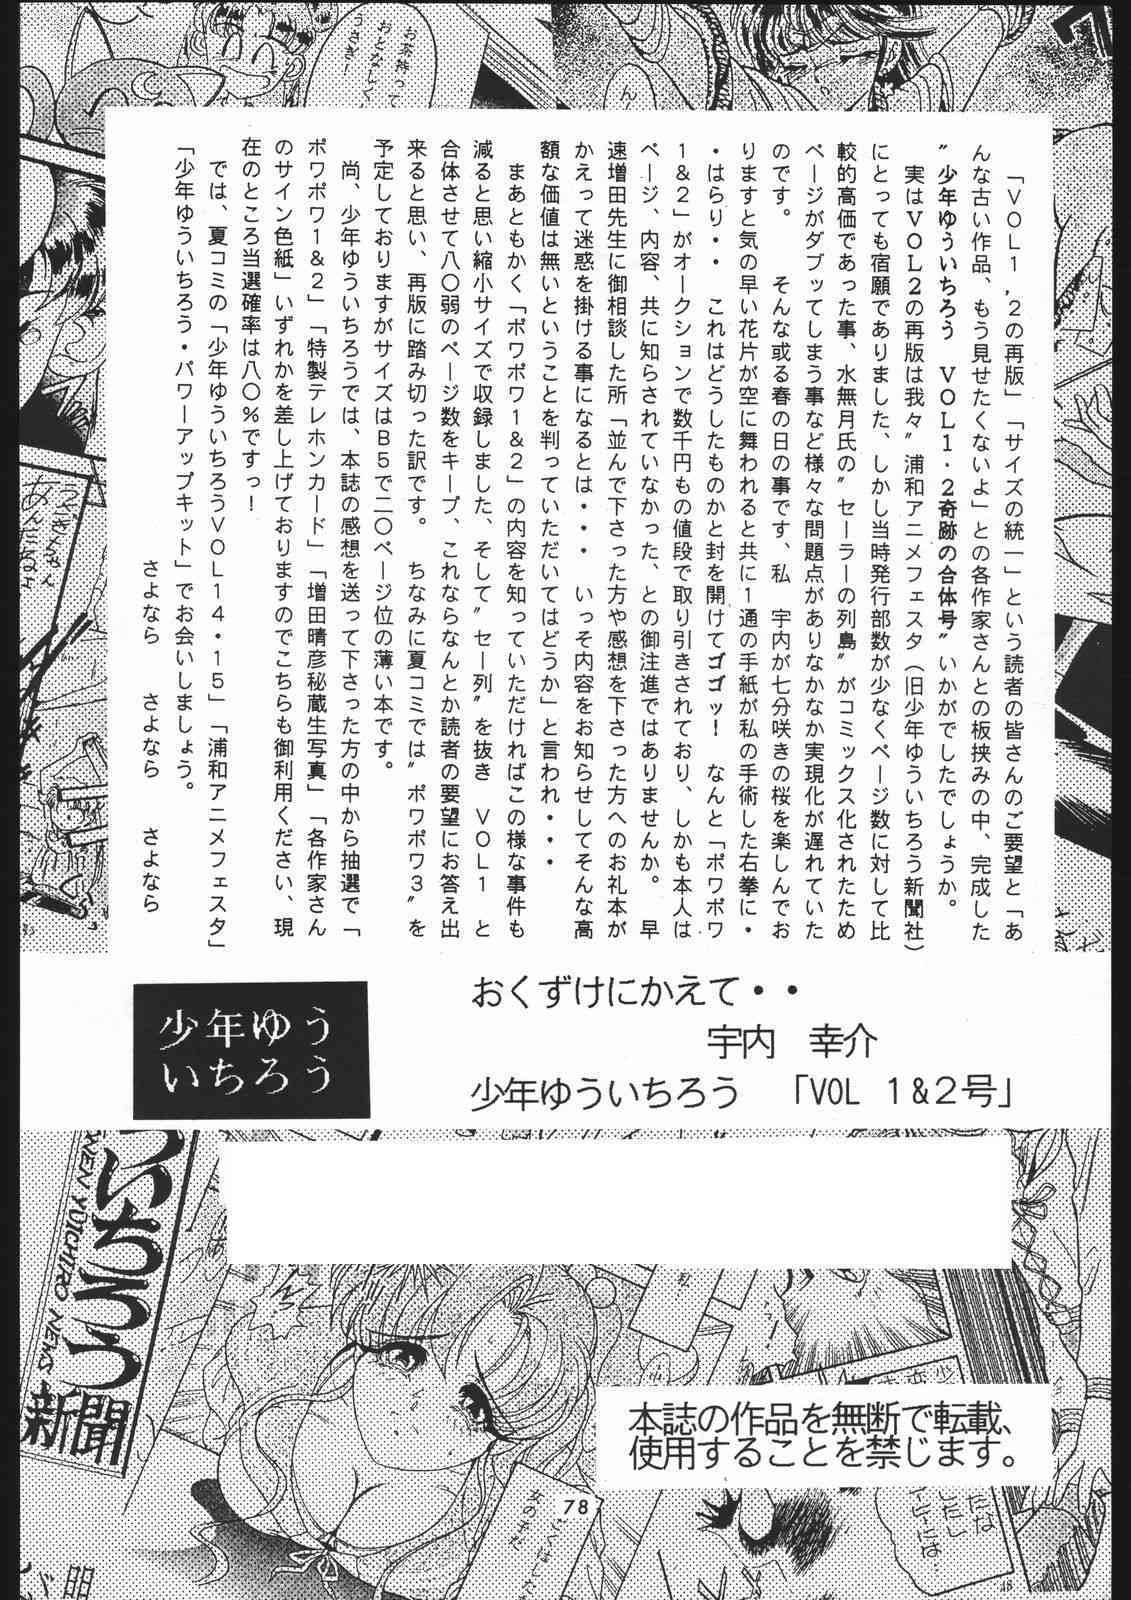 「VOL1,2の再版」「サイズの統一」という読者の皆さんのご要望と「あ
んな古い作品、もう見せたくないよ」との各作家さんとの板挟みの中、完成した
〝少年ゆういちろう　VOL1・2奇跡の合体号〟いかがでしたでしょうか。
実はVOL2の再版は我々〝浦和アニメフェスタ（旧少年ゆういちろう新聞社）
にとっても宿願でありました、しかし当時発行部数が少なくページ数に対して比
較的高価であった事、水無月氏の〝セーラーの列島〟がコミックス化されたため
ページがダブッてしまう事など様々な問題点がありなかなか実現化が遅れていた
のです。　そんな或る春の日の事です、私　宇内が七分咲きの桜を楽しんでお
りますと気の早い花片が空に舞われると共に1通の手紙が私の手術した右拳に・
・はらり・・　これはどうしたものかと封を開けてゴゴッ！　なんと「ポワポワ
1＆2」がオークションで数千円もの値段で取り引きされており、しかも本人は
ページ、内容、共に知らされていなかった、との御注進ではありませんか。　早
速増田先生に御相談した所「並んで下さった方や感想を下さった方へのお礼本が
かえって迷惑を掛ける事になるとは・・・　いっそ内容をお知らせしてそんな高
額な価値は無いということを判っていただいてはどうか」と言われ・・・
まあともかく「ポワポワ1＆2」の内容を知っていただければこの様な事件も
減ると思い縮小サイズで収録しました、そして〝セー列〟を抜き　VOL1　と
合体させて八〇弱のページ数をキープ、これならなんとか読者の要望にお答え出
来ると思い、再版に踏み切った訳です。　ちなみに夏コミでは〝ポワポワ3〟を
予定しておりますがサイズはB5で二〇ページ位の薄い本です。
尚、少年ゆういちろうでは、本誌の感想を送って下さった方の中から抽選で「
ポワポワ1＆2」「特製テレホンカード」「増田晴彦秘蔵生写真」「各作家さん
のサイン色紙」いずれかを差し上げておりますのでこちらも御利用ください、現
在のところ当選確率は八〇％ですっ！
では、夏コミの「少年ゆういちろうVOL14・15」「浦和アニメフェスタ」
「少年ゆういちろう・パワーアップキット」でお会いしましょう。
さよなら　さよなら　さよなら
お茶持って
おとなしく
うさぎ！
少年ゆう
いちろう
おくずけにかえて・・
宇内　幸介
少年ゆういちろう　「VOL 1＆2号」
いちろう
新聞
WEN YUICHIRO NEWS
本誌の作品を無断で転載、
使用することを禁じます。
78